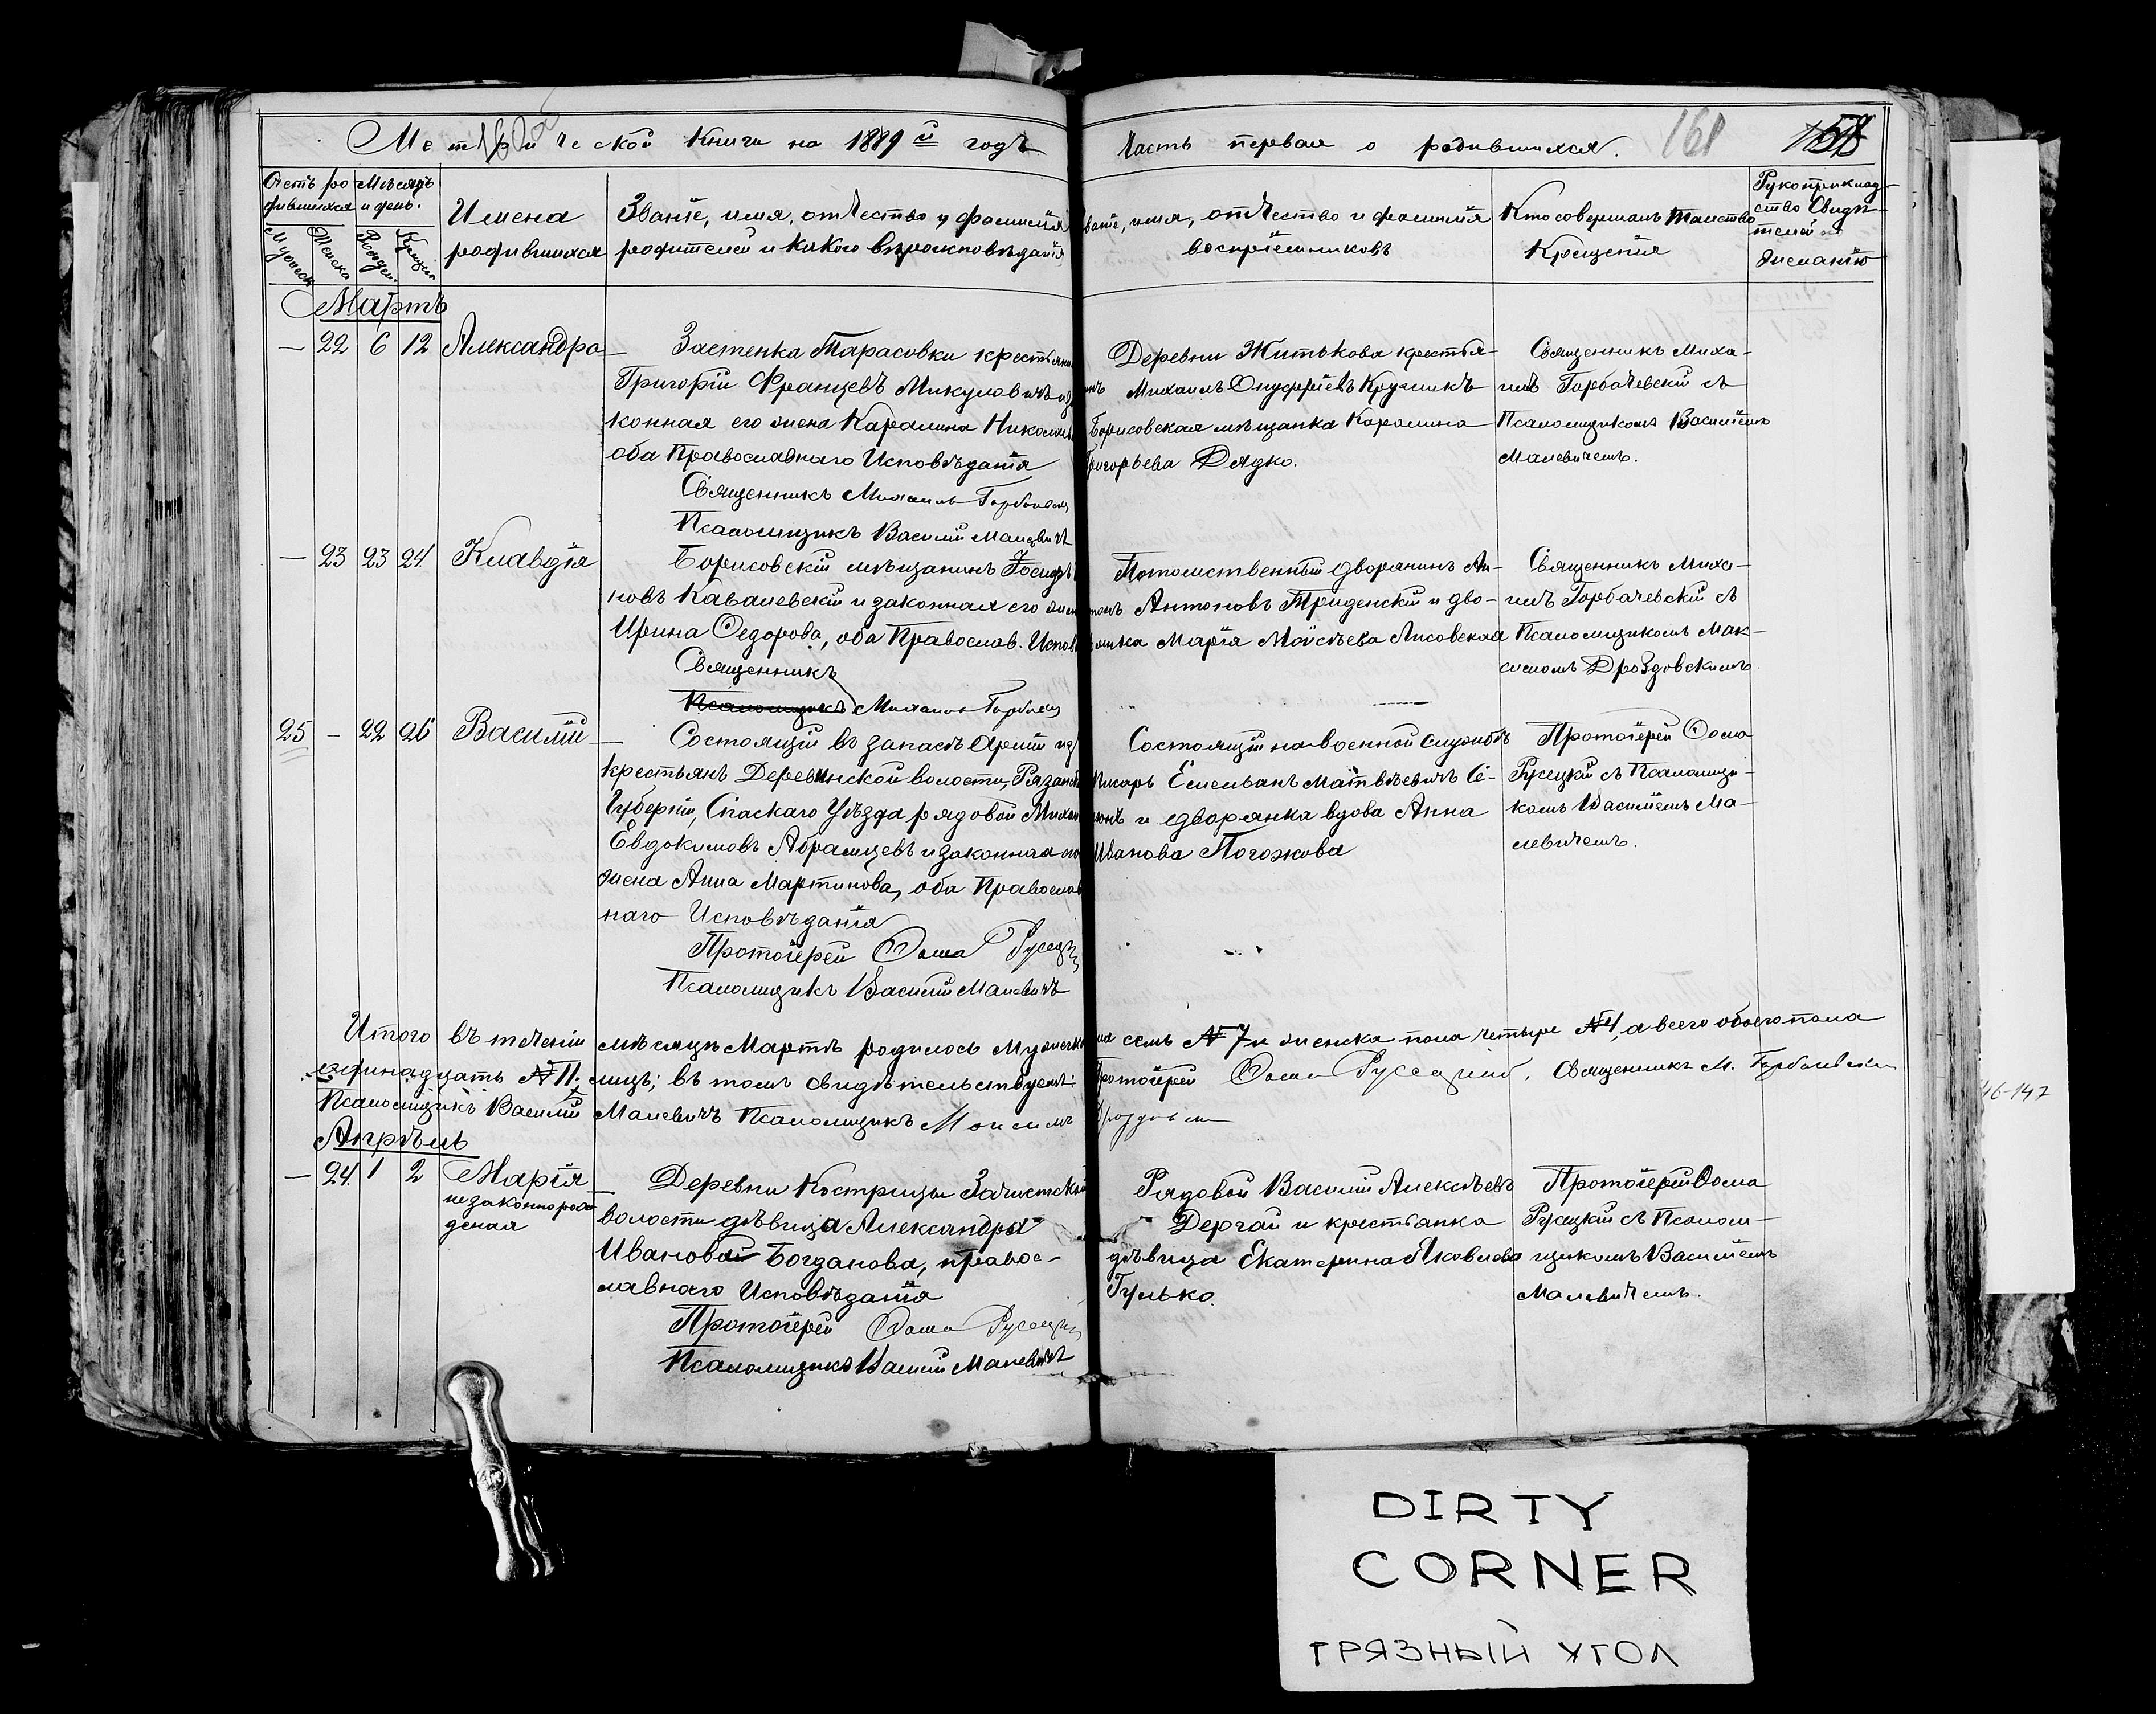 Метрической книги на 1889й годъ
Часть первая о родившихся.
168
Счетъ ро-
дившихся
Мѣсяцъ
и день.
Имена
родившихся
Званіе, имя, отчество и фамилія
родителей и какого вѣроисповѣданія
Званіе, имя, отчество и фамилія
воспріемниковъ
Кто совершалъ таинство
Крещенія
Рукоприклад-
ство свидѣ-
телей по
желанію
Мартъ
— 22 6 12 Александра
Застенка Тарасовки крестьянинъ
Григорій Францевъ Микуловичъ и за
конная его жена Каралина Николаев
оба Православнаго Исповѣданія
Священникъ Михаилъ Горбачевскій
Псаломщикъ Василій Малевичъ
Деревни Житькова крестья-
нинъ Михаилъ Онуфріевъ Кружикъ
Борисовская мѣщанка Каролина
Григорьева Дядко.
Священникъ Миха-
илъ Горбачевскій съ
Псаломщикомъ Василіемъ
Малевичемъ.
— 23 23 24 Клавдія
Борисовскій мѣщанинъ Іосифъ
новъ Кавалевскій и законная его жена
Ирина Федорова, оба Православ. Испов
Священникъ
Псаломщикъ Михаилъ Горбачев
Потомственный дворянинъ Ан-
тонъ Антоновъ Триденскій и дво-
рянка Марія Моисѣева Лисовская
Священникъ Миха-
илъ Горбачевскій съ
Псаломщикомъ Мак-
симомъ Дроздовскимъ
25 — 22 26 Василій
Состоящій въ запасѣ Арміи из
крестьянъ Деревинской волости, Рязанск
Губерніи, Спаскаго Уѣзда рядовой Михаил
Евдокимовъ Абрамцевъ и законная его
жена Анна Мартинова, оба Православ
наго Исповѣданія
Протоіерей Фома Русецкій
Псаломщикъ Василій Малевичъ
Состоящій на военной службѣ
Писарь Емельянъ Матвѣевичъ Се-
и дворянка вдова Анна
Иванова Погожова
Протоіерей Фома
Русецкій съ Псаломщи-
комъ Василіемъ Ма-
левичемъ.
Итого въ теченіи мѣсяцъ Мартѣ родилось мужеска пола семь №7 и женска пола четыре №4, а всего обоего пола
одинадцать №11. лицъ; въ томъ свидѣтельствуемъ: Протоіерей Фома Русецкій, Священникъ М. Горбачевскій
Псаломщикъ Василій Малевичъ Псаломщикъ Максимъ Дроздовскі
46-147
Апрѣль
— 24. 1 2 Марія
незаконнорож
деная
Деревни Кострицы Зачистской
волости дѣвица Александра
Иванова Богданова, правос-
лавнаго Исповѣданія
Протоіерей Фома Русецкій
Псаломщикъ Василій Малевичъ
Рядовой Василій Алексѣевъ
Дергай и крестьянка
дѣвица Екатерина Яковлева
Гулько.
Протоіерей Фома
Русецкій съ Псалом-
щикомъ Василіемъ
Малевичемъ.
DIRTY
CORNER
ГРЯЗНЫЙ УГОЛ